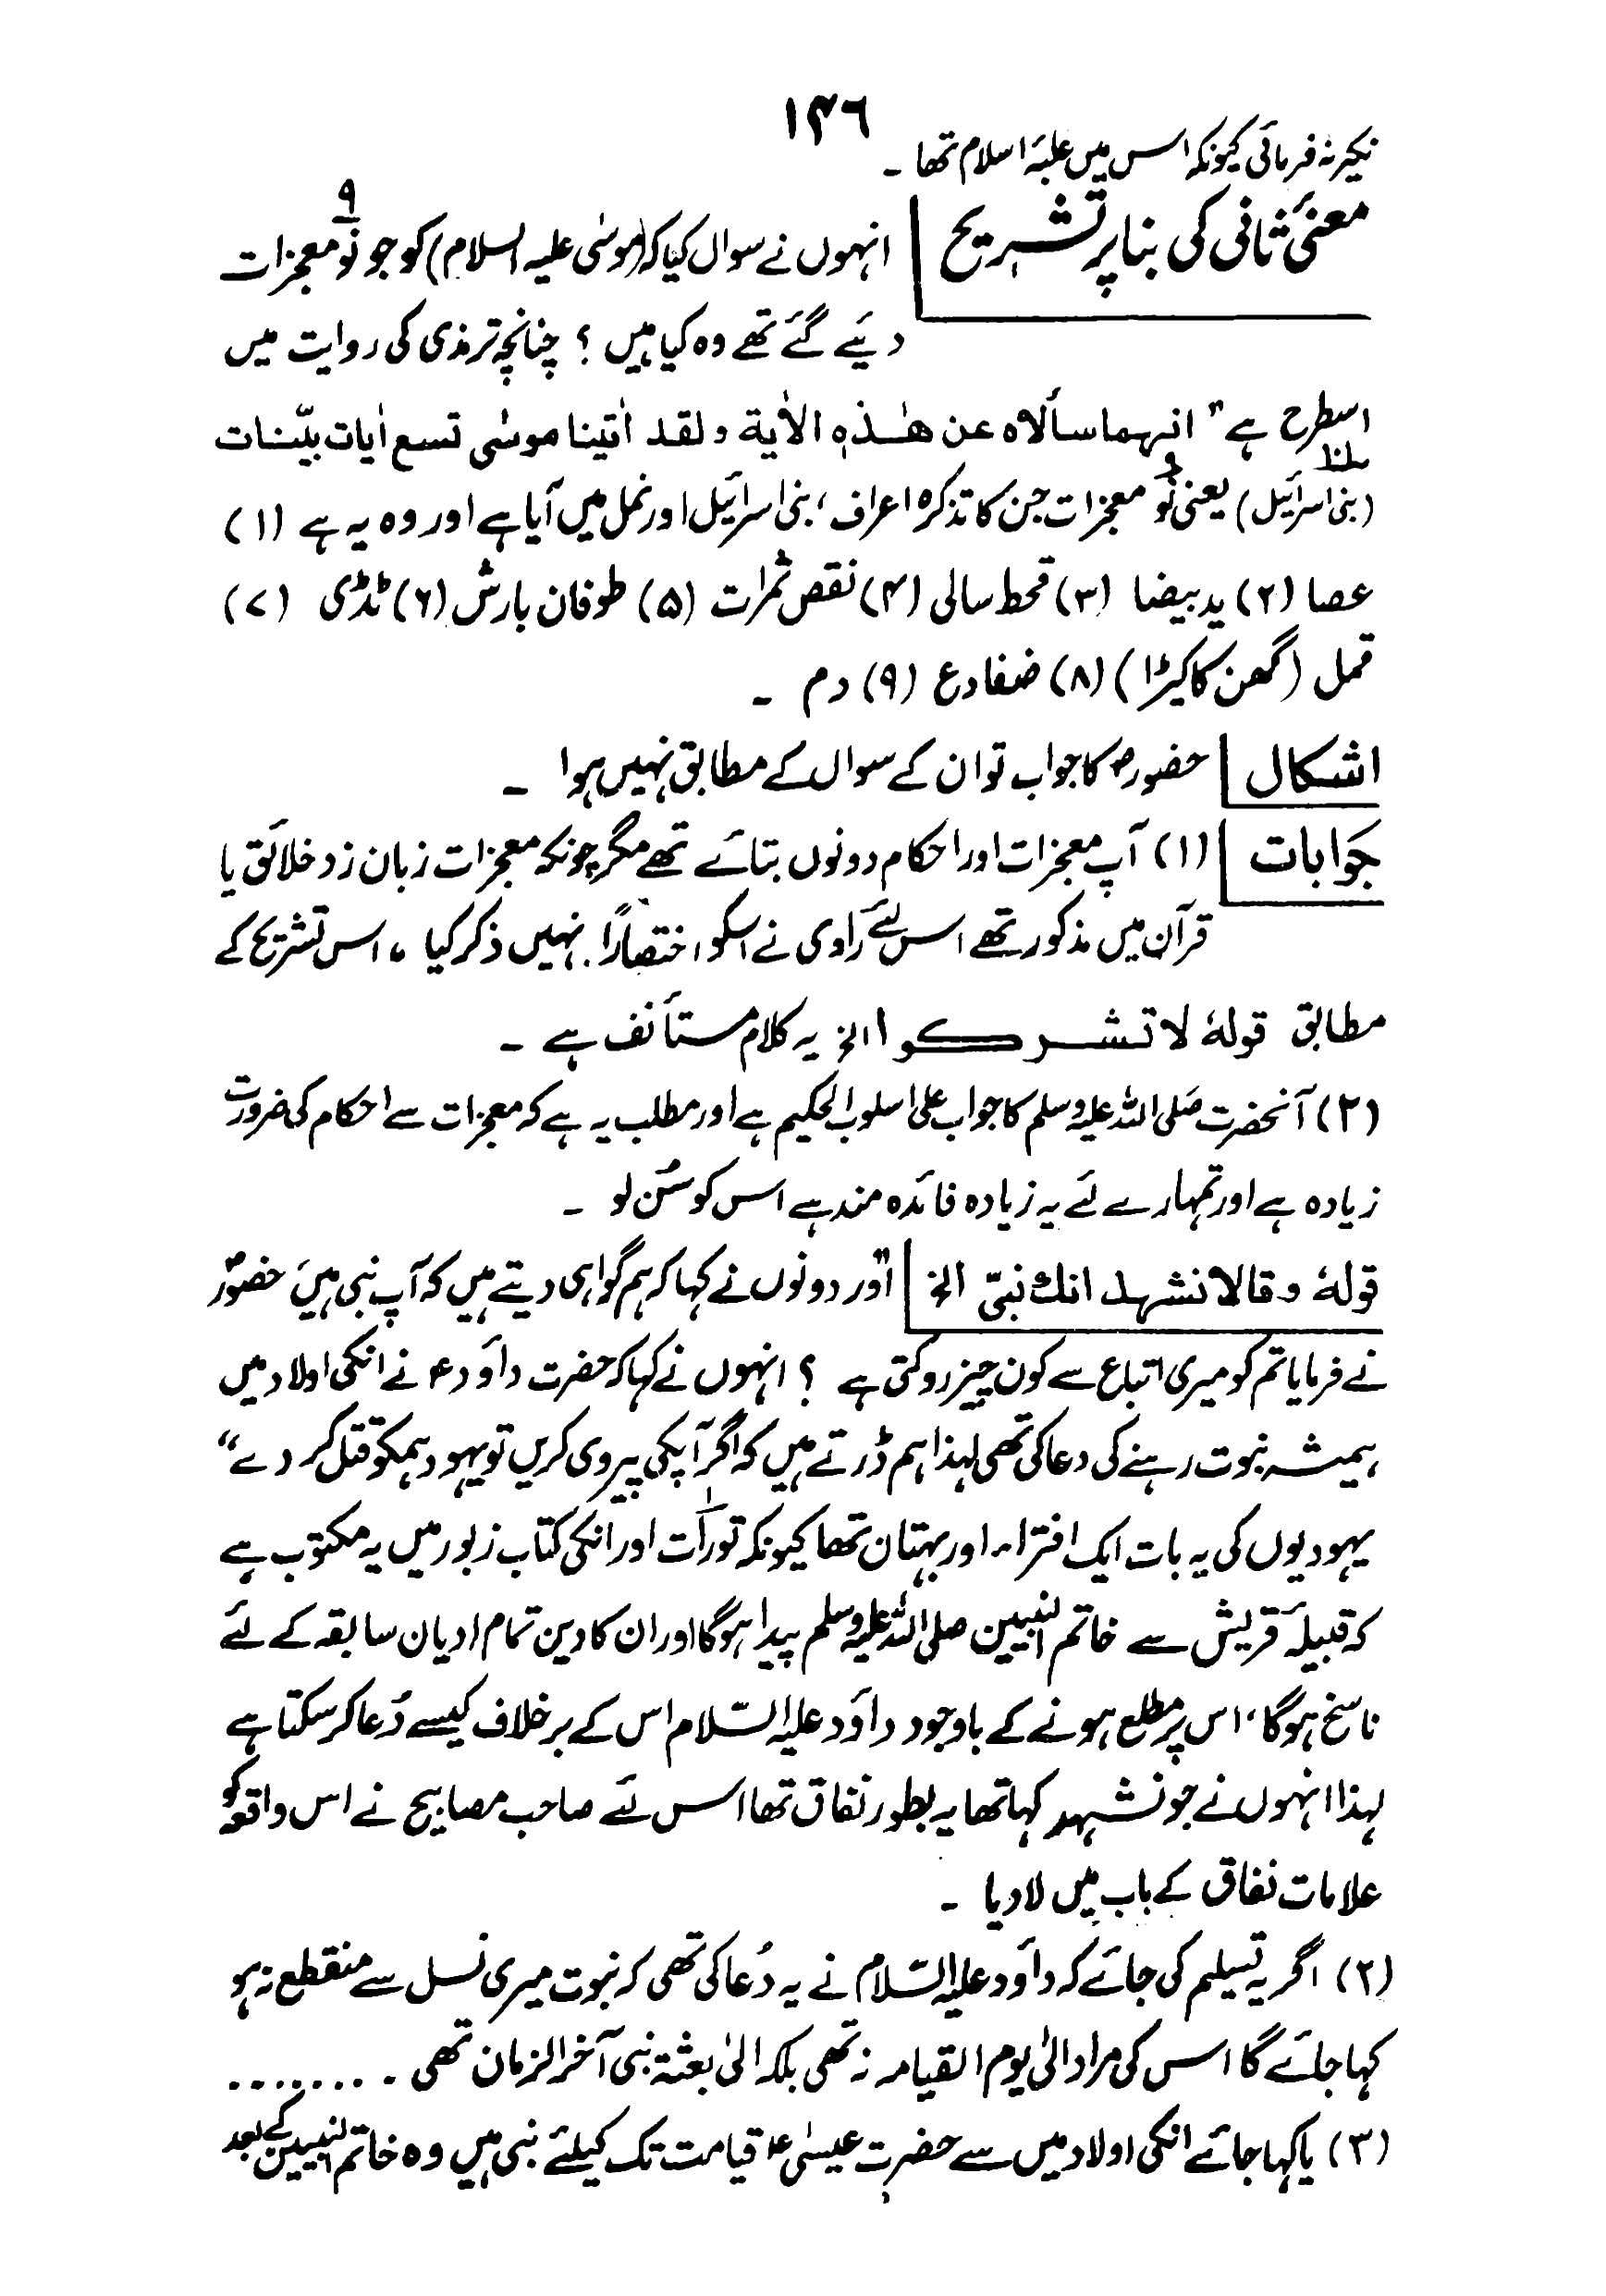 ۱۴٦
نکیر نہ فرمائی کیونکہ اس میں غلبۂ اسلام تھا ۔
معنیٔ ثانی کی بنا پر تشریح انہوں نے سوال کیا کہ (موسٰی علیہ السلام) کو جو نَو ۹ معجزات
دیئے گئے تھے وہ کیا ہیں ؟ چنانچہ ترمذی کی روایت میں
اسطرح ہے " انہما سألاہ عن ھٰذہ الاٰیۃ ولقد اٰتینا موسٰی تسع اٰیات بیّنات
(بنی اسرائیل) یعنی نَو ۹ معجزات جن کا تذکرہ اعراف ، بنی اسرائیل اور نمل میں آیا ہے اور وہ یہ ہے (۱)
عصا (۲) ید بیضا (۳) قحط سالی (۴) نقص ثمرات (۵) طوفان بارش (۶) ٹڈی (۷)
قمل (گھن کا کیڑا) (۸) ضفادع (۹) دم ۔
اشکال حضورؐ کا جواب تو ان کے سوال کے مطابق نہیں ہوا ۔
جوابات (۱) آپ معجزات اور احکام دونوں بتائے تھے مگر چونکہ معجزات زبان زد خلائق یا
قرآن میں مذکور تھے اس لئے راوی نے اسکو اختصاراً نہیں ذکر کیا ، اس تشریح کے
مطابق قولہٗ لا تشرکوا الخ یہ کلام مستأنف ہے ۔
(۲) آنحضرت صلی اللہ علیہ وسلم کا جواب علی اسلوب الحکیم ہے اور مطلب یہ ہے کہ معجزات سے احکام کی ضرورت
زیادہ ہے اور تمہارے لئے یہ زیادہ فائدہ مند ہے اس کو سُن لو ۔
قولہٗ وقالا نشہد انک نبیّ الخ "اور دونوں نے کہا کہ ہم گواہی دیتے ہیں کہ آپ نبی ہیں حضورؐ
نے فرمایا تم کو میری اتباع سے کون چیز روکتی ہے ؟ انہوں نے کہا کہ حضرت داؤدؑ نے انکی اولاد میں
ہمیشہ نبوت رہنے کی دعا کی تھی لہذا ہم ڈرتے ہیں کہ اگر آپکی پیروی کریں تو یہود ہمکو قتل کر دے"
یہودیوں کی یہ بات ایک افتراء اور بہتان تھا کیونکہ تورٰات اور انکی کتاب زبور میں یہ مکتوب ہے
کہ قبیلۂ قریش سے خاتم النبیین صلی اللہ علیہ وسلم پیدا ہوگا اور ان کا دین تمام ادیان سابقہ کے لئے
ناسخ ہوگا ، اس پر مطلع ہونے کے باوجود داؤد علیہ السّلام اس کے برخلاف کیسے دُعا کر سکتا ہے
لہذا انہوں نے جو نشہد کہا تھا یہ بطور نفاق تھا اس لئے صاحب مصابیح نے اس واقعہ کو
علامات نفاق کے باب میں لا دیا ۔
(۲) اگر یہ تسلیم کی جائے کہ داؤد علیہ السّلام نے یہ دُعا کی تھی کہ نبوت میری نسل سے منقطع نہ ہو
کہا جائے گا اس کی مراد الیٰ یوم القیامہ نہ تھی بلکہ الیٰ بعثۃ نبی آخر الزمان تھی ۔ .......
(۳) یا کہا جائے انکی اولاد میں سے حضرت عیسٰیؑ قیامت تک کیلئے نبی ہیں وہ خاتم النبیین کے بعد